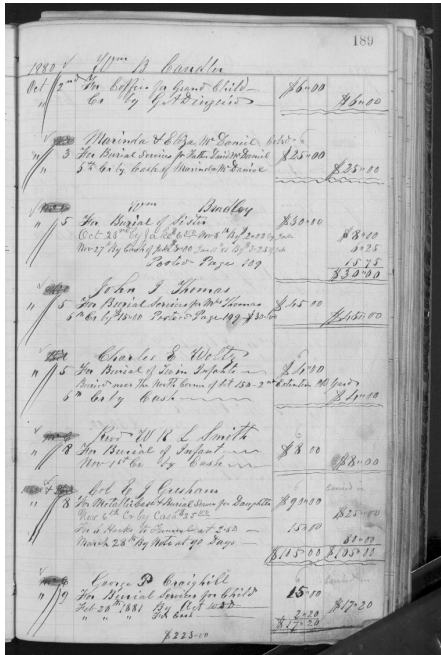 189
1880 Wm B Candler
Oct 2nd For Coffin for Grand Child $6.00
Cr by $6.00
Marinda & Eliza McDaniel
" 3 For Burial Services for Father McDaniel $25.00
5th Cr by Cash of Marinda McDaniel $25.00
Wm Bradley
" 5 For Burial of Sister $30.00
Oct 23rd By $8.00
Nov 27th By Cash 6.25
Posted Page 109 15.75
$30.00
John J Thomas
" 5 For Burial Services for Mrs Thomas $45.00
6th Cr by 15.00 Posted Page 199 $30.00 $45.00
Charles E Welty
" 5 For Burial of Twin Infants $4.00
Buried near the North Corner of lot 150 2nd Extention Old Yard
6th Cr by Cash $4.00
Revd W R L Smith
" 8 For Burial of Infant $8.00
Nov 1st Cr by Cash $8.00
Col E J Gresham
" 8 For Metallic Case & Burial Service for Daughter $90.00
Nov 6th Cr by Cash $25.00 $25.00
For 6 Hacks to Funeral at 2.50 15.00
March 28th By Note at 90 Days 80.00
$105.00 $105.00
George P Craighill
" 9 For Burial Services for Child 15.00
Feb 20th 1881 By $17.20
" " " For 2.20
$17.20
$223.00